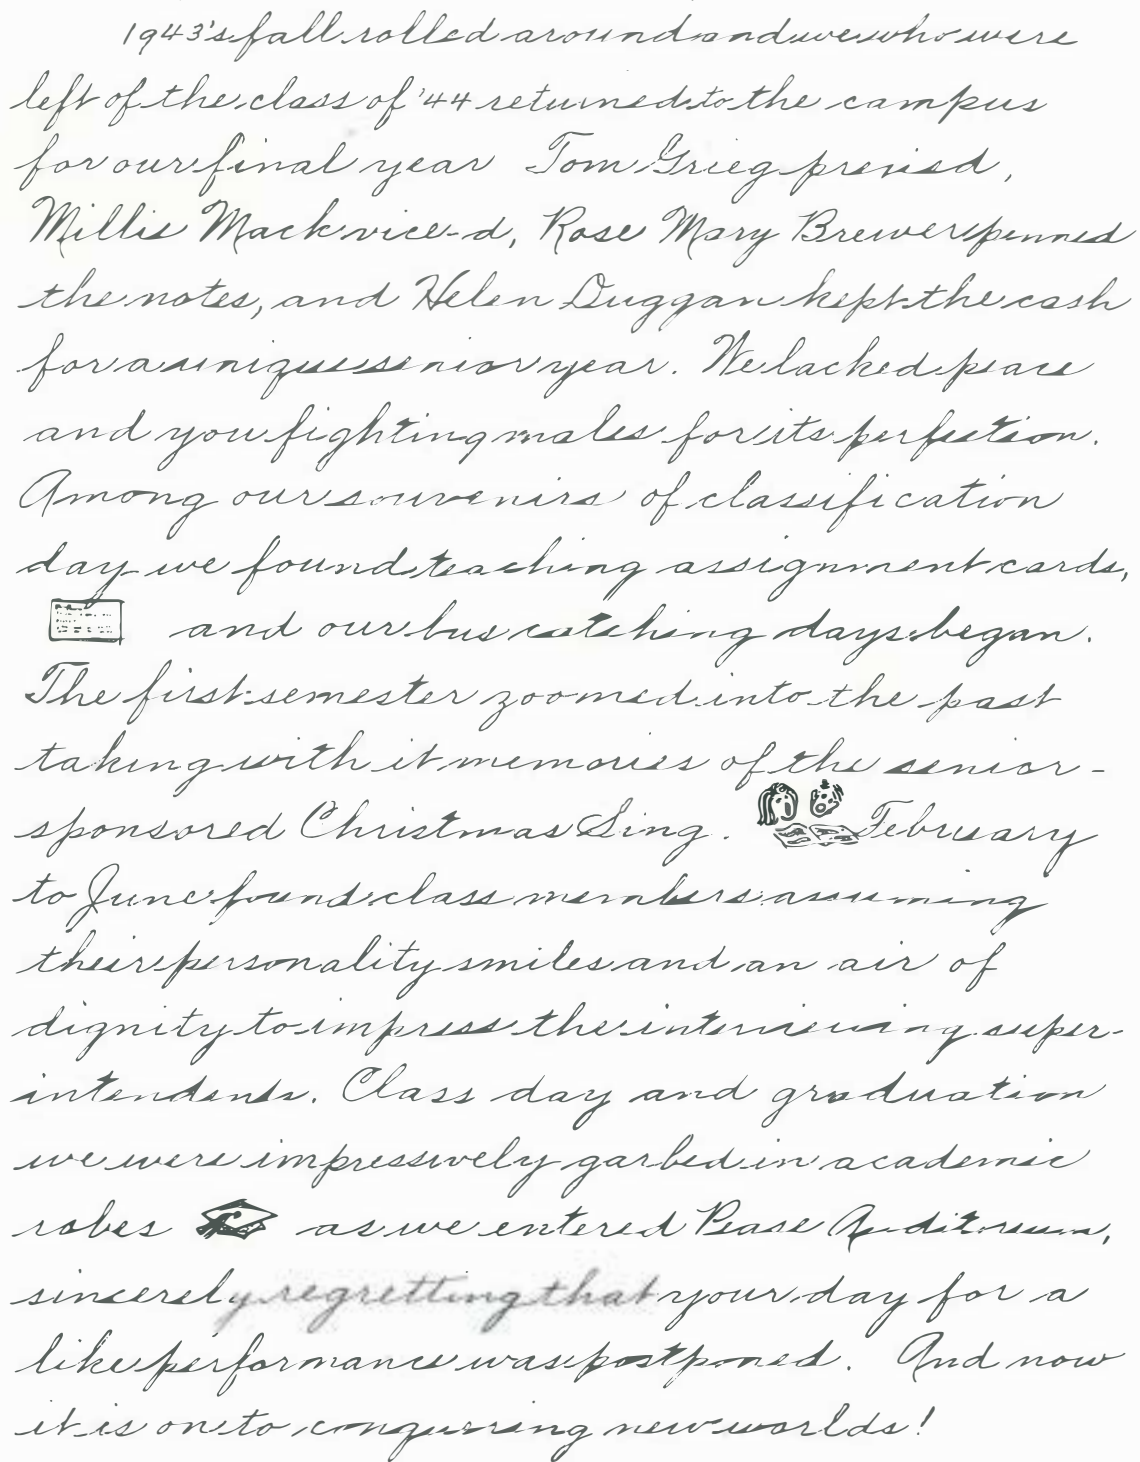 1943's fall rolled around and we who were
left of the class of '44 returned to the campus
for our final year Tom Grieg prexied,
Millie Mack vice-d, Rose Mary Brewer penned
the notes, and Helen Duggan kept the cash
for a unique senior year. We lacked peace
and you fighting males for its perfection.
Among our souvenirs of classification
day we found teaching assignment cards,
and our bus catching days began.
The first semester zoomed into the past
taking with it memories of the senior-
sponsored Christmas Sing. February
to June found class members assuming
their personality smiles and an air of
dignity to impress the interviewing super-
intendents. Class day and graduation
we were impressively garbed in academic
robes as we entered Pease Auditorium,
sincerely regretting that your day for a
like performance was postponed. And now
it is on to conquering new worlds!